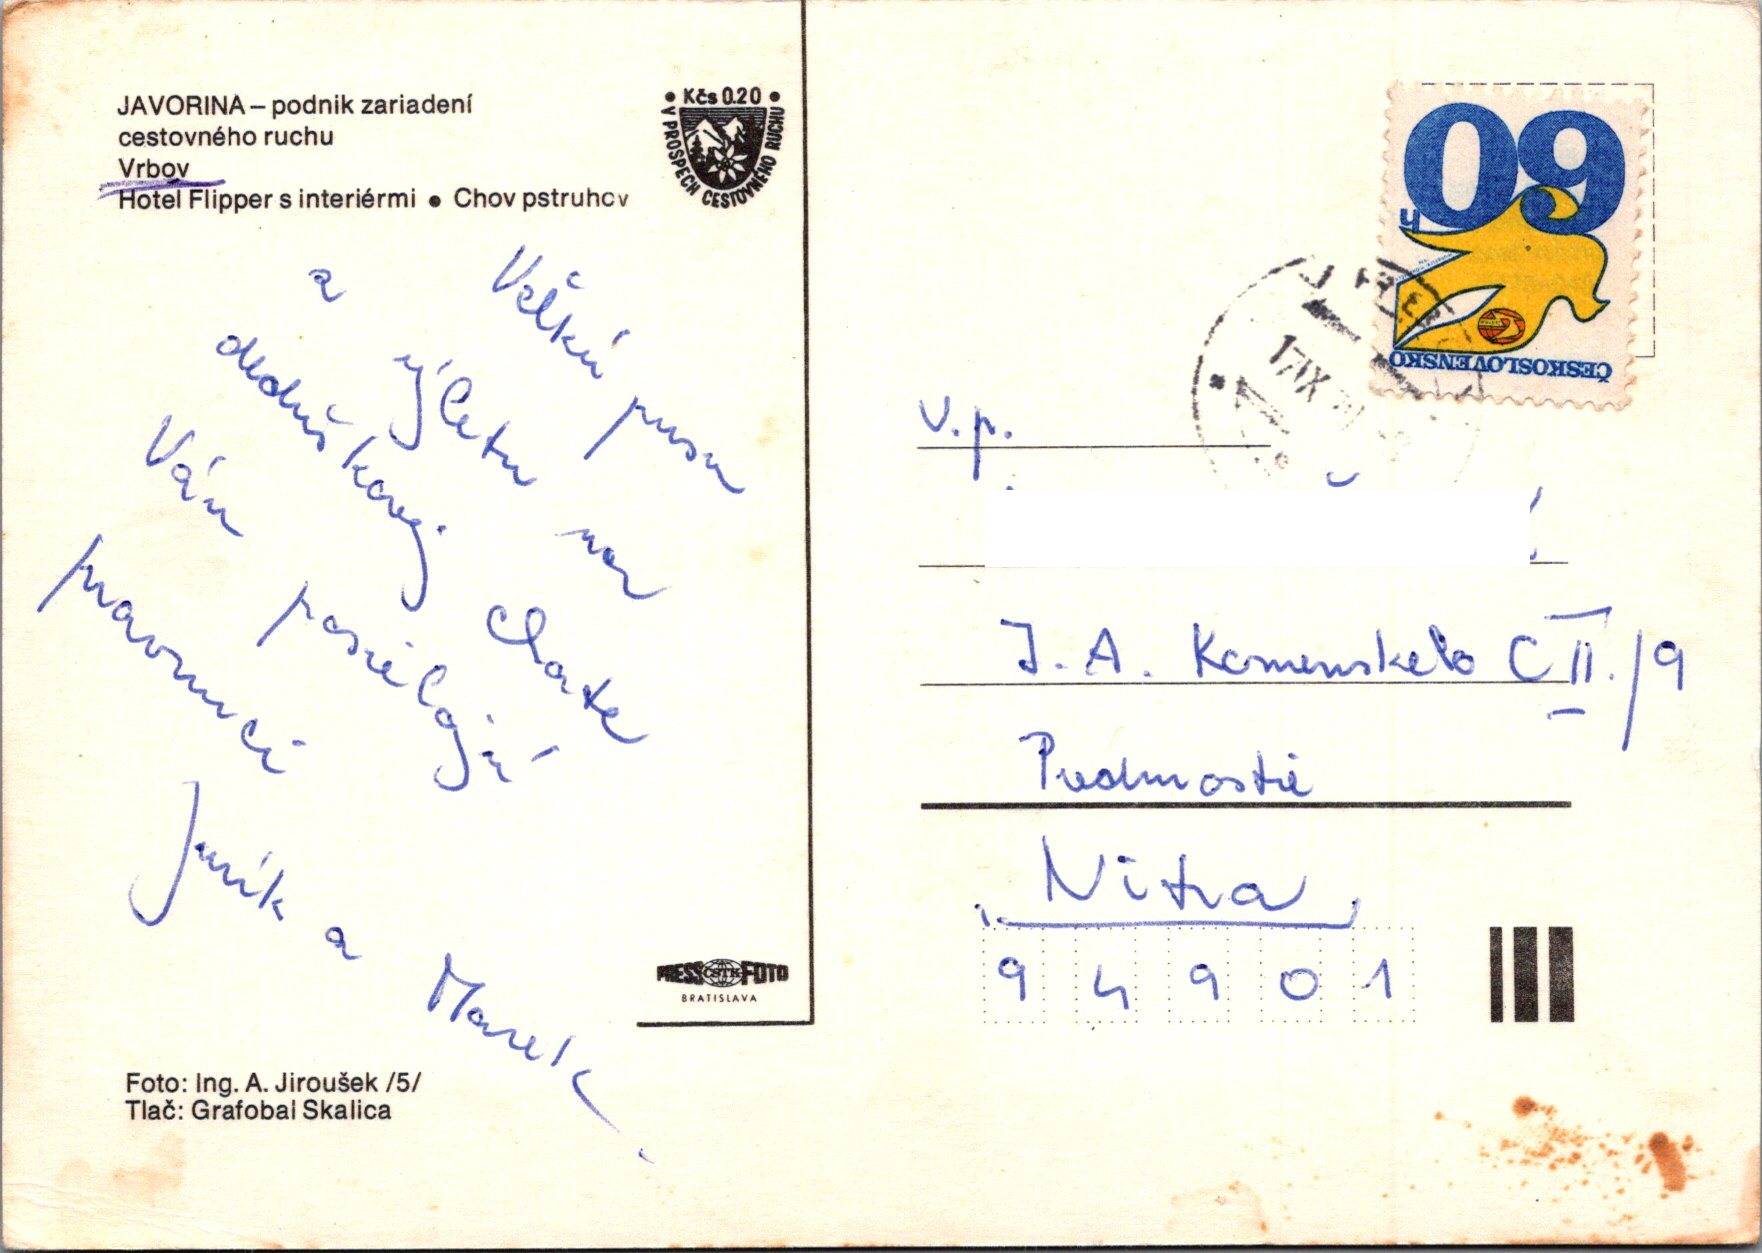 JAVORINA – podnik zariadení
cestovného ruchu
Vrbov
Hotel Flipper s interiérmi • Chov pstruhov
• Kčs 0.20 •
V PROSPECH CESTOVNÉHO RUCHU
Veľkú pusu
z výletu na chate
deduškovej
Vám posielajú
pravnuci
Jurík a Marek
PRESS ČSTK FOTO
BRATISLAVA
Foto: Ing. A. Jiroušek /5/
Tlač: Grafobal Skalica
60 h
ČESKOSLOVENSKO
17.IX
V. p.
J. A. Komenského C II./9
Predmostie
Nitra
94901